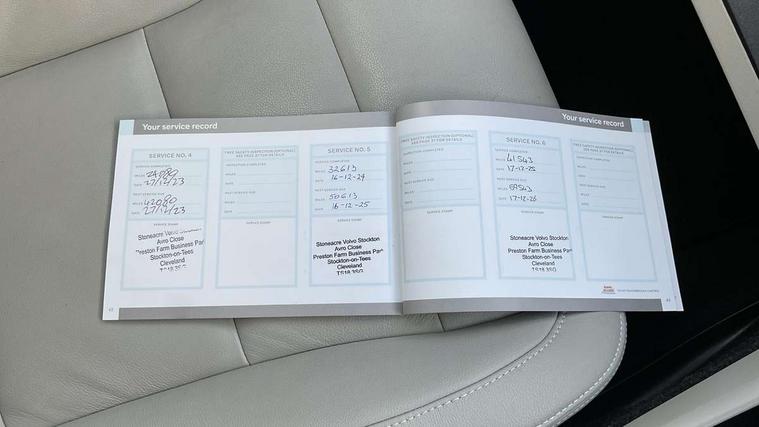 Your service record
SERVICE NO. 4
SERVICE COMPLETED
MILES
DATE 27/12/23
NEXT SERVICE DUE
MILES 42080
DATE 27/12/23
SERVICE STAMP
Avro Close
Preston Farm Business Par
Stockton-on-Tees
Cleveland
FREE SAFETY INSPECTION (OPTIONAL)
INSPECTION COMPLETED
MILES
DATE
NEXT SERVICE DUE
MILES
DATE
SERVICE STAMP
SERVICE NO. 5
SERVICE COMPLETED
MILES 32613
DATE 16-12-24
NEXT SERVICE DUE
MILES 50613
DATE 16-12-25
SERVICE STAMP
Stoneacre Volvo Stockton
Avro Close
Preston Farm Business Park
Stockton-on-Tees
Cleveland
TS18 3SG
Your service record
FREE SAFETY INSPECTION (OPTIONAL)
INSPECTION COMPLETED
MILES
DATE
NEXT SERVICE DUE
MILES
DATE
SERVICE STAMP
SERVICE NO. 6
SERVICE COMPLETED
MILES 41543
DATE 17-12-25
NEXT SERVICE DUE
MILES 59543
DATE 17-12-26
SERVICE STAMP
Stoneacre Volvo Stockton
Avro Close
Preston Farm Business Park
Stockton-on-Tees
Cleveland
TS18 3SG
FREE SAFETY INSPECTION (OPTIONAL)
INSPECTION COMPLETED
MILES
DATE
NEXT SERVICE DUE
MILES
DATE
SERVICE STAMP